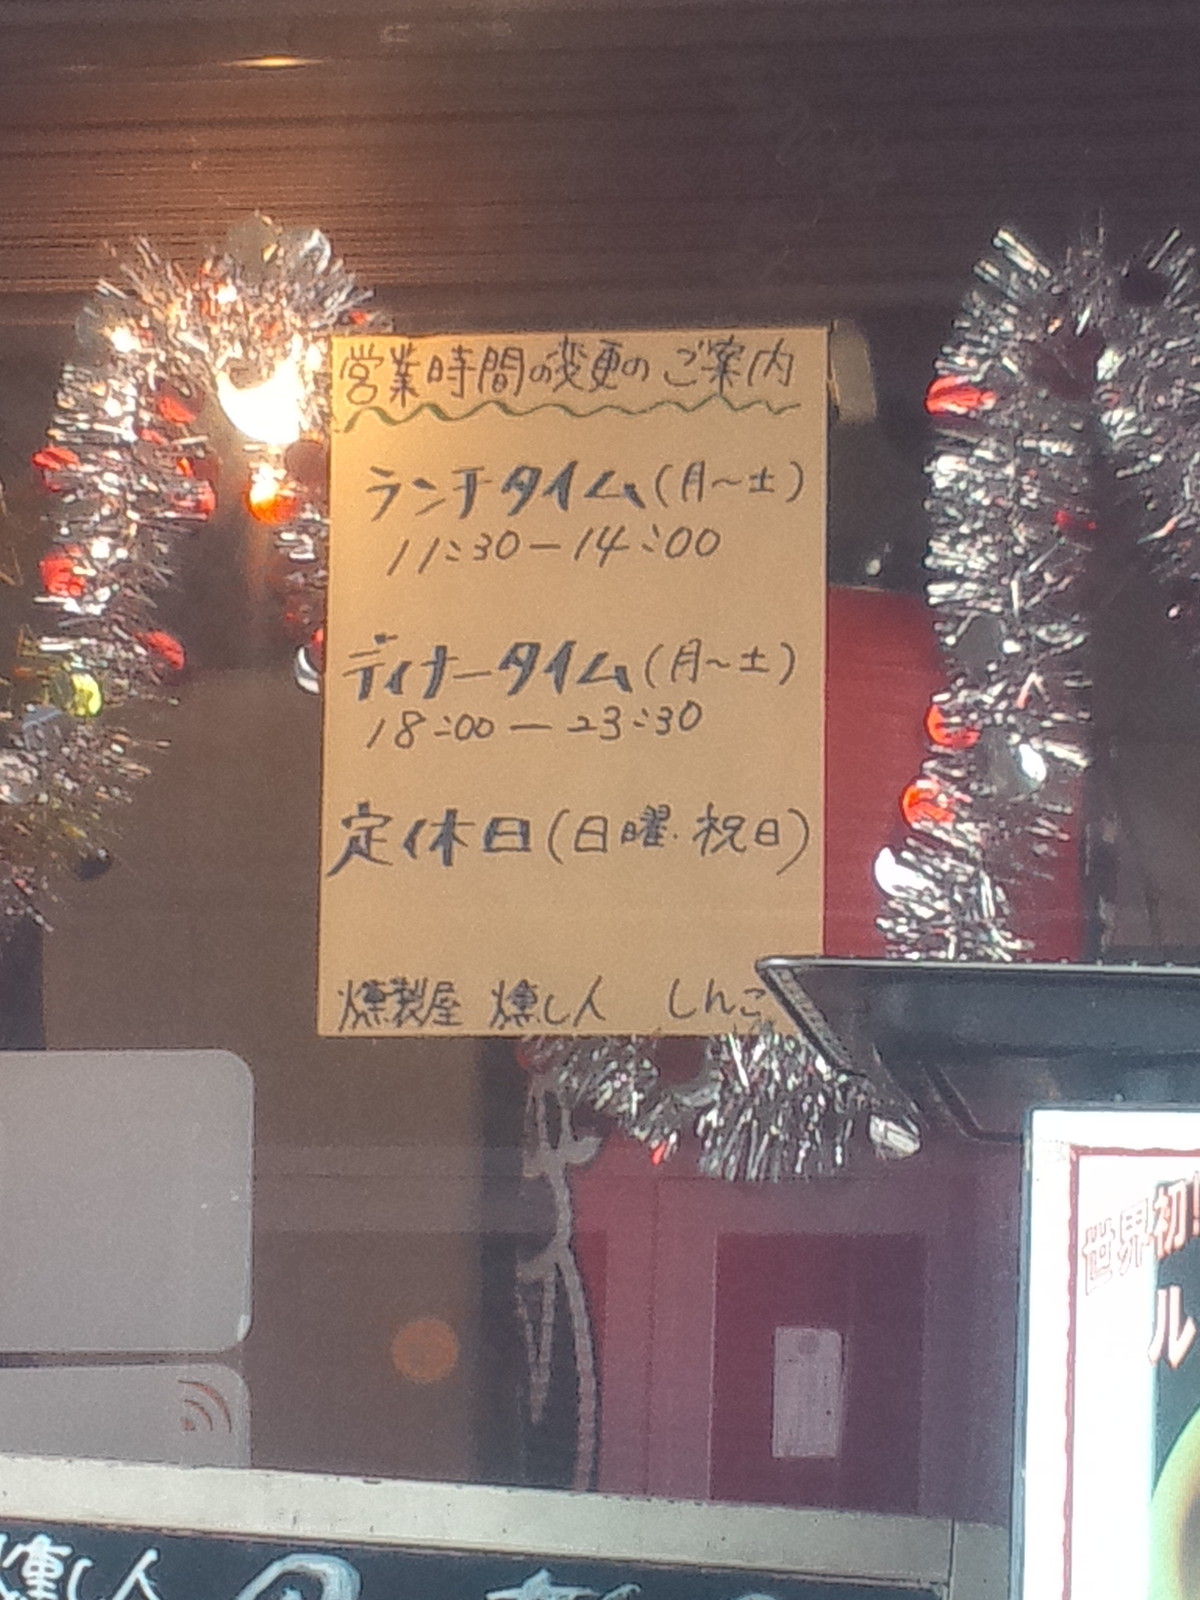 営業時間の変更のご案内
ランチタイム(月〜土)
11:30ー14:00
ディナータイム(月〜土)
18:00ー23:30
定休日(日曜.祝日)
燻製屋 燻し人 しんご
世界初!
ル
燻し人